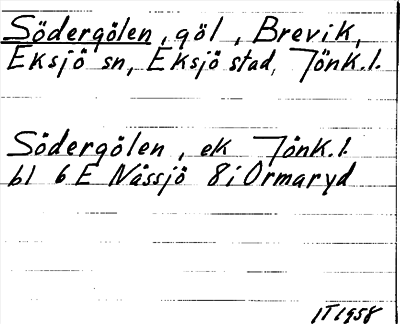 Södergölen, göl, Brevik,
Eksjö sn, Eksjö stad, Jönk.l.
Södergölen, ek Jönk.l.
bl 6E Nässjö 8i Ormaryd
IT1958